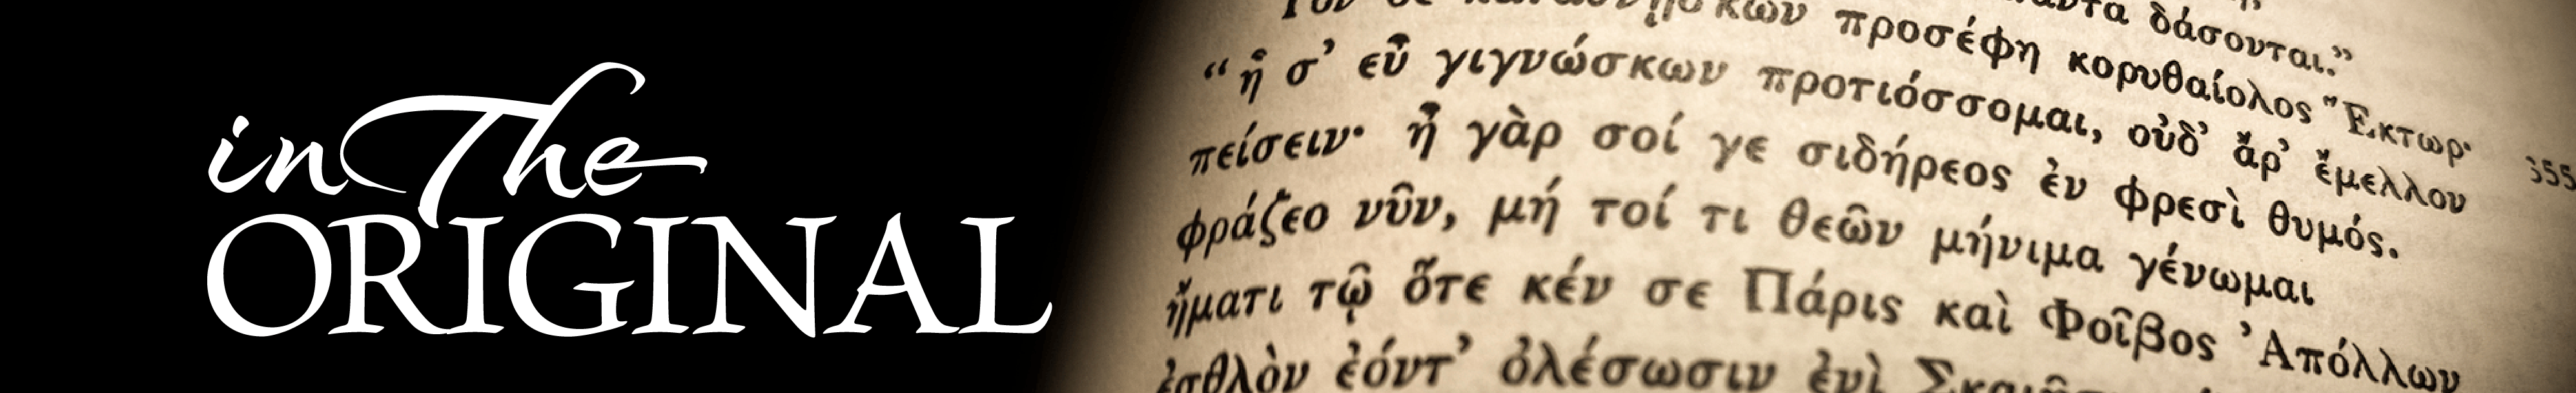 in The
ORIGINAL
δάσονται.”
προσέφη κορυθαίολος Ἕκτωρ·
“ἦ σ’ εὖ γιγνώσκων προτιόσσομαι, οὐδ’ ἄρ’ ἔμελλον
355
πείσειν· ἦ γὰρ σοί γε σιδήρεος ἐν φρεσὶ θυμός.
φράζεο νῦν, μή τοί τι θεῶν μήνιμα γένωμαι
ἤματι τῷ ὅτε κέν σε Πάρις καὶ Φοῖβος Ἀπόλλων
ἐσθλὸν ἐόντ’ ὀλέσωσιν ἐνὶ